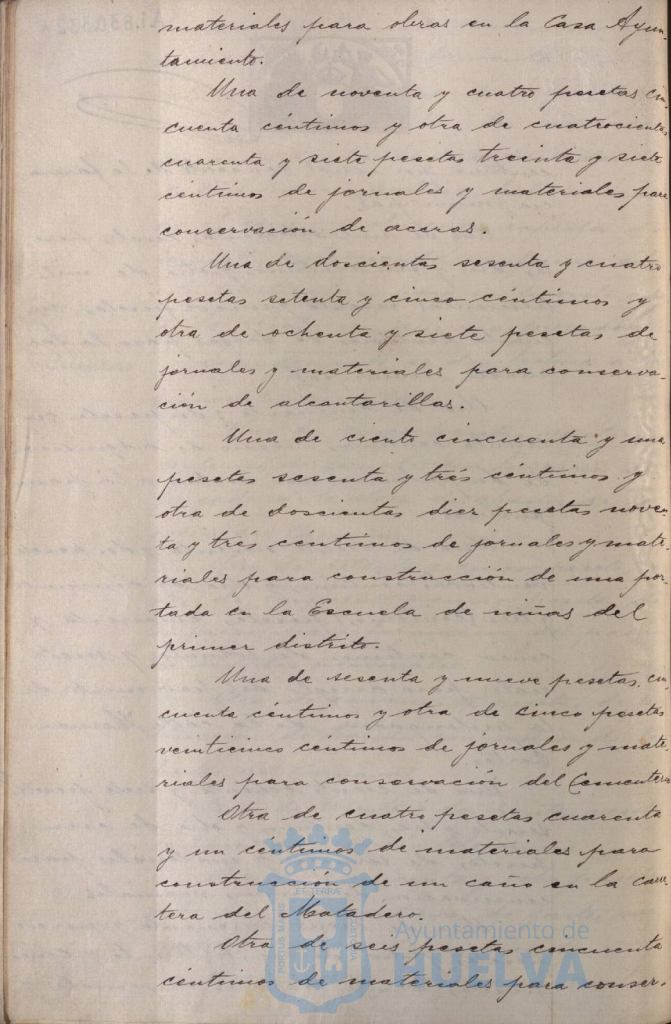 materiales para obras en la Casa Ayun-
tamiento.
Una de noventa y cuatro pesetas cin-
cuenta céntimos y otra de cuatrocientas
cuarenta y siete pesetas treinta y siete
céntimos de jornales y materiales para
conservación de aceras.
Una de doscientas sesenta y cuatro
pesetas setenta y cinco céntimos y
otra de ochenta y siete pesetas de
jornales y materiales para conserva-
ción de alcantarillas.
Una de ciento cincuenta y una
pesetas sesenta y trés céntimos y
otra de doscientas diez pesetas noven-
ta y trés céntimos de jornales y mate-
riales para construcción de una por-
tada en la Escuela de niñas del
primer distrito.
Una de sesenta y nueve pesetas cin-
cuenta céntimos y otra de cinco pesetas
veinticinco céntimos de jornales y mate-
riales para conservación del Cementerio
Otra de cuatro pesetas cuarenta
y un céntimos de materiales para
construcción de un caño en la carre-
tera del Matadero.
Otra de seis pesetas cincuenta
céntimos de materiales para conser-
Ayuntamiento de
HUELVA